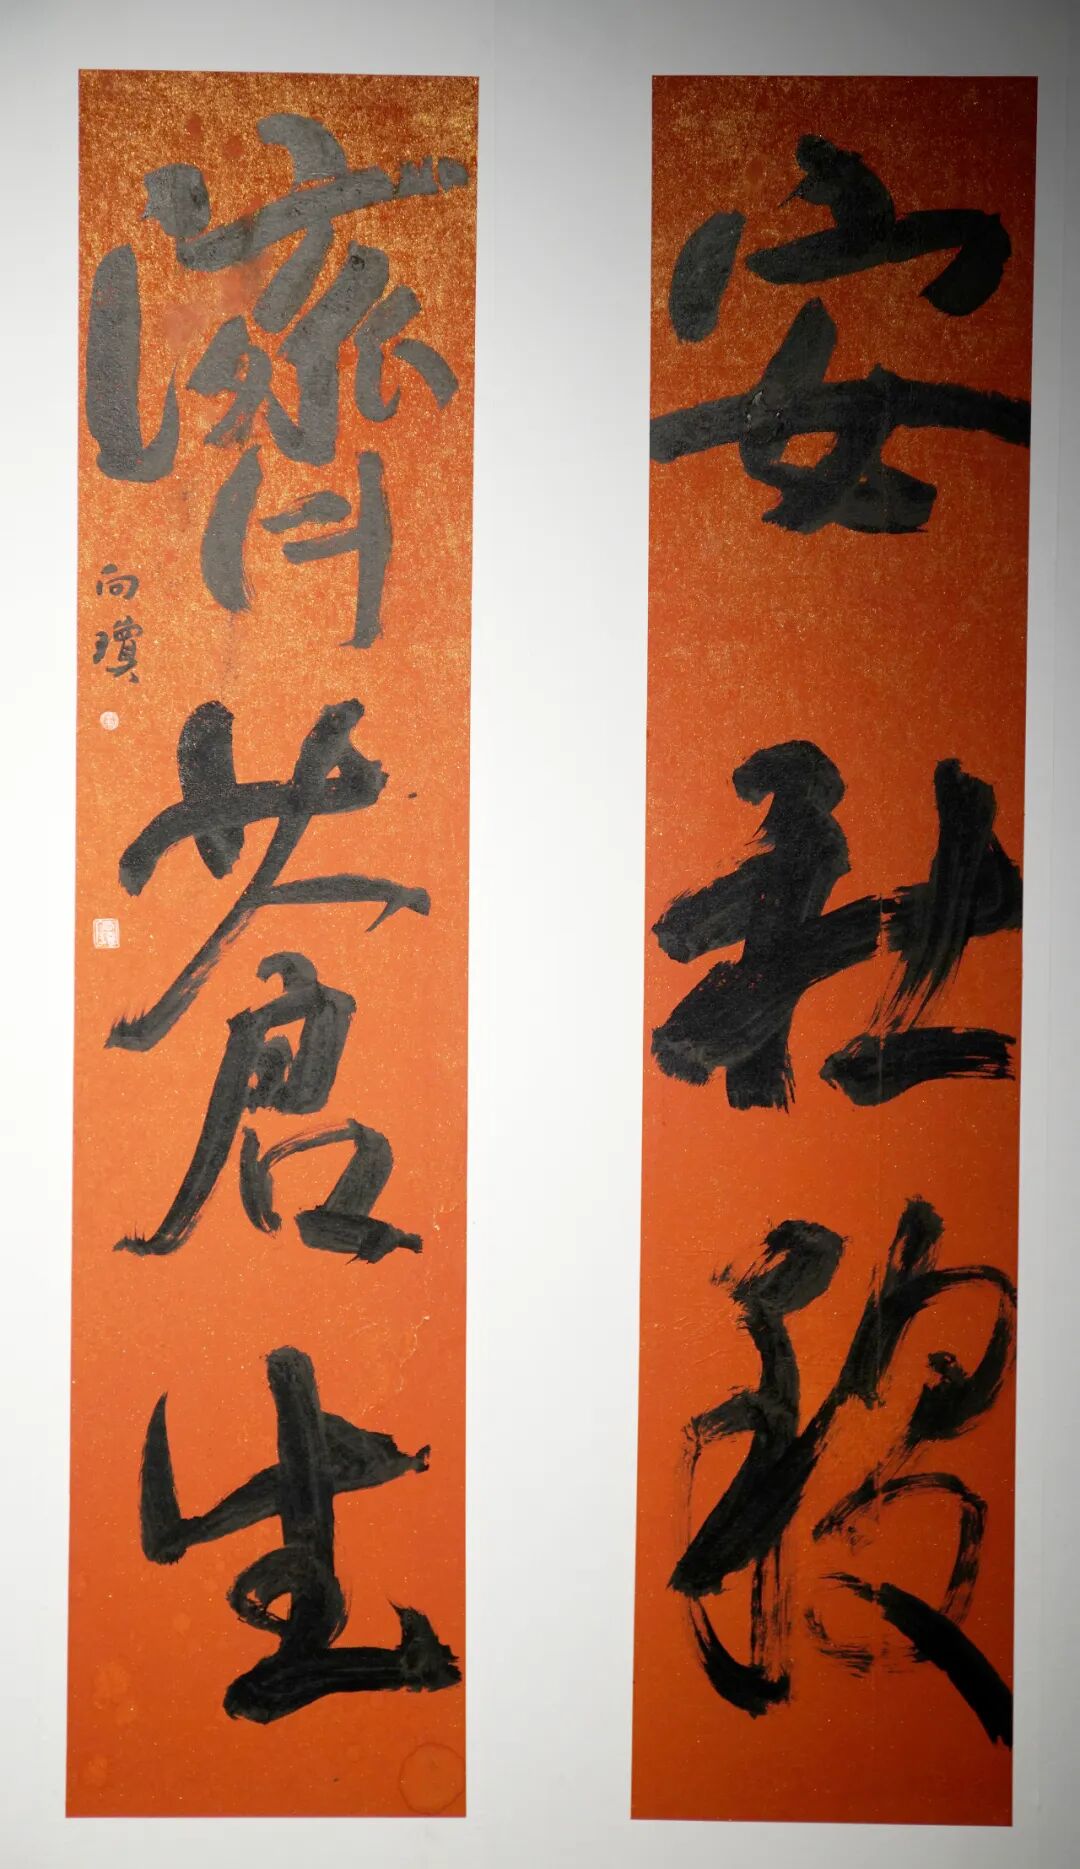 安社稷
濟蒼生
向